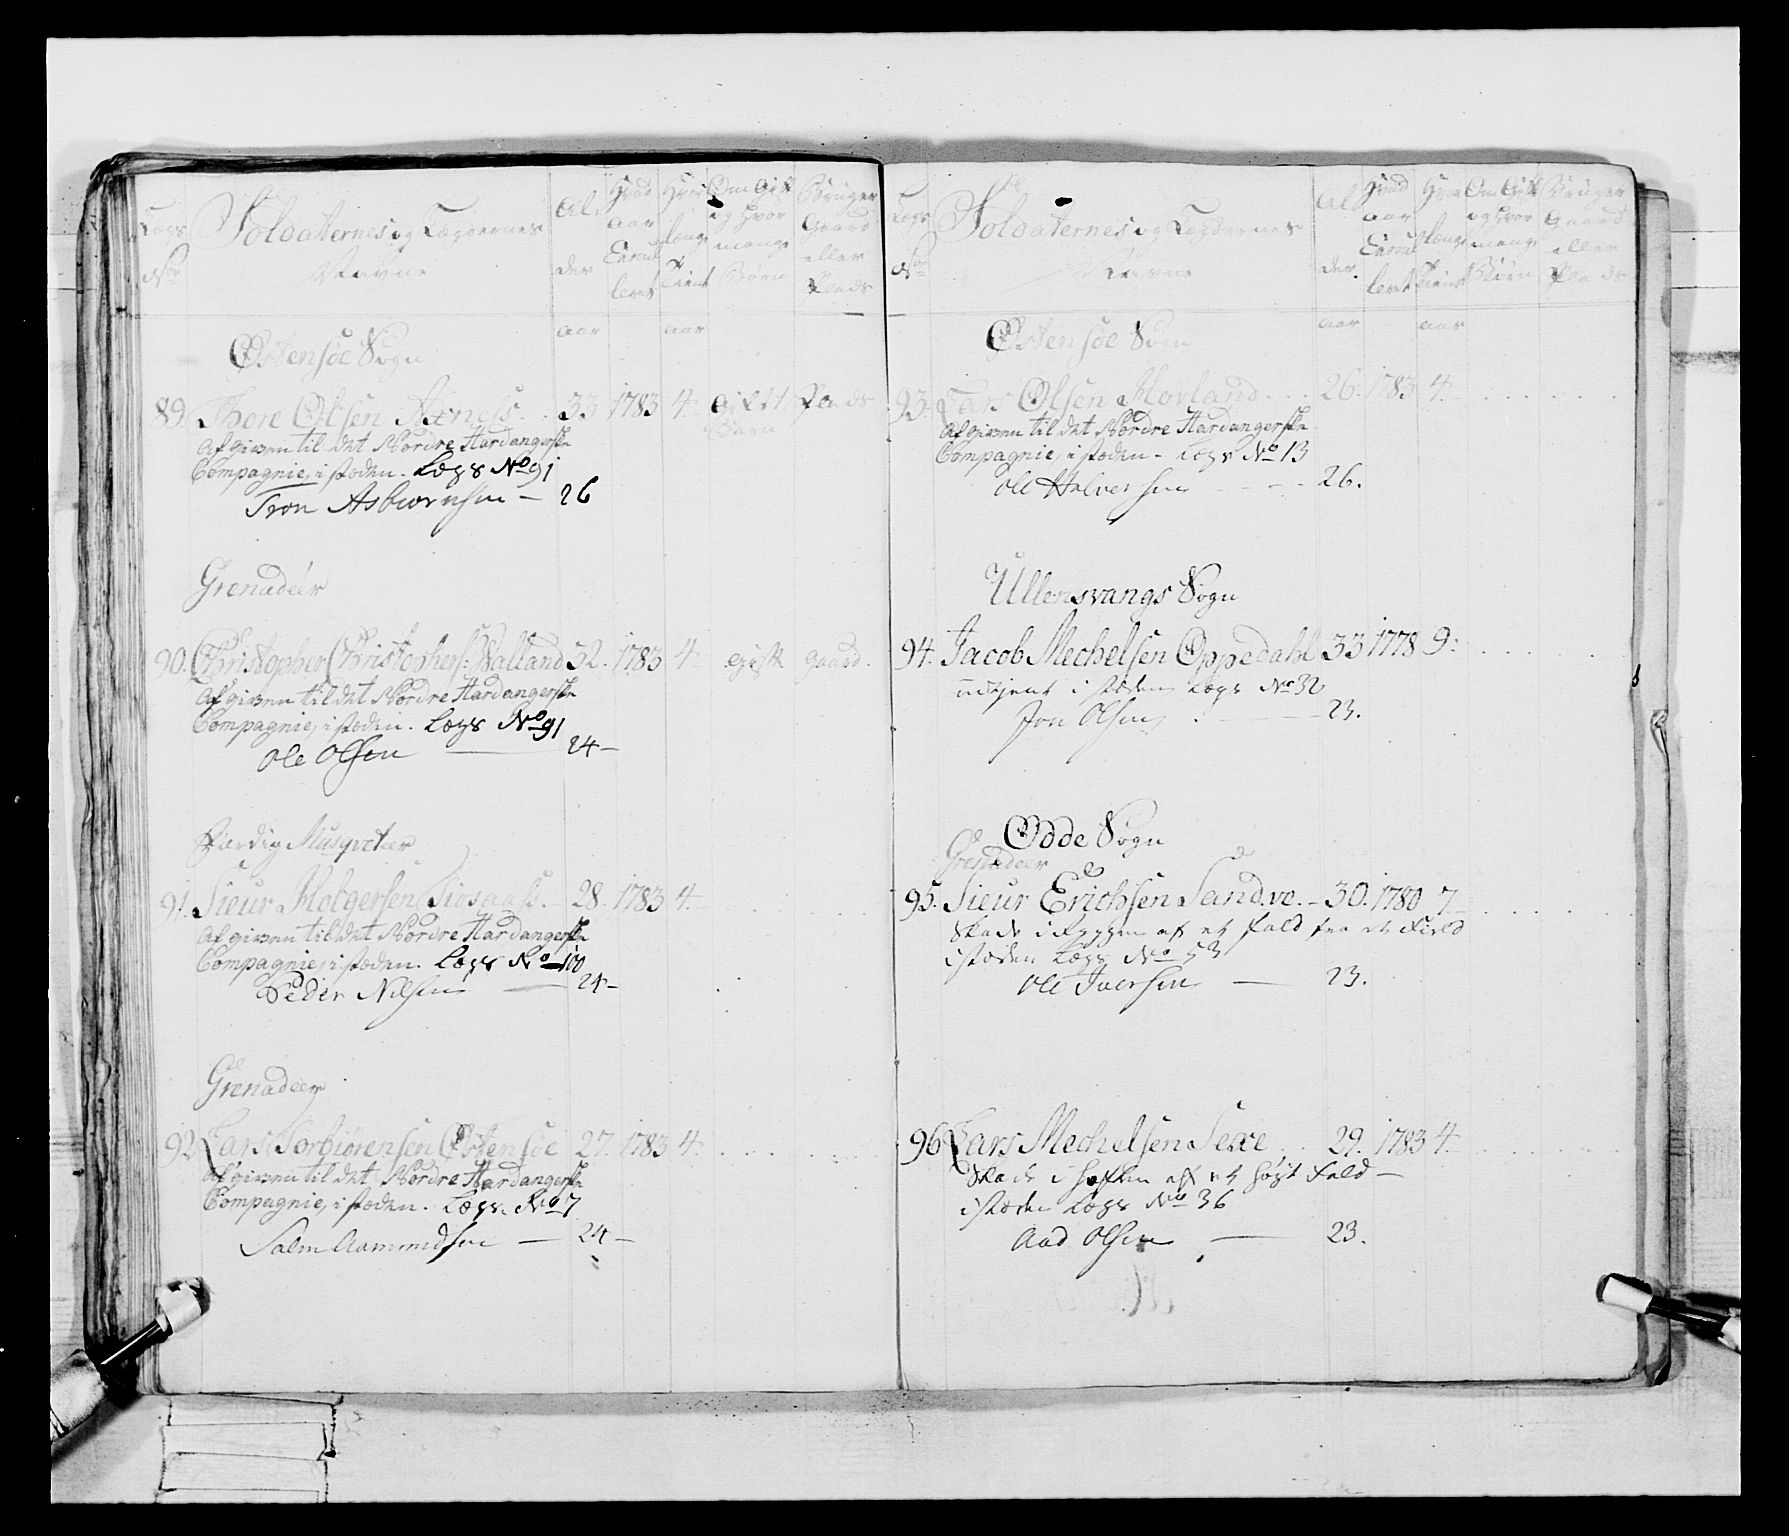 Lægs No
Soldaternes og Lægdernes Navne
Al der
Hvad aar Enroul leret
Hvor længe Tient
Om Gift og hvor mange Børn
Bruger Gaard eller Plads
aar
aar
Østensøe Sogn
89. Thore Olsen Axness. 33 1783 4. Gift 1 Barn Plads
Afgiven til det Nordre Hardangerske
Compagnie, i stæden. Lægs No 91
Tron Asbiørnsen — 26
Grenadéer
90. Christopher Christophers: Walland 32. 1783 4. gift gaard.
Afgiven til det Nordre Hardangerske
Compagnie, i stæden. Lægs No 91
Ole Olsen — 24 —
Færdig Musqveteer
91. Sieur Holgersen 28. 1783 4.
Afgiven til det Nordre Hardangerske
Compagnie, i stæden. Lægs No 100
Peder Nilsen — 24 —
Grenadeer
92 Lars Torbiørensen Østensøe 27. 1783 4.
Afgiven til det Nordre Hardangerske
Compagnie, i stæden. Lægs. No 7
Salm Aamundsen — 24 —
Lægs No
Soldaternes og Lægdernes Navne
Al der
Hvad aar Enroul leret
Hvor længe Tient
Om Gift og hvor mange Børn
Bruger Gaard eller Plads
aar
aar
Østensøe Sogn
93. Lars Olsen Hovland 26. 1783 4.
Afgiven til det Nordre Hardangerske
Compagnie, i stæden. Lægs No 13
Ole Halversen 26.
Ullensvangs Sogn
94. Jacob Mechelsen Oppedahl 33 1778 9.
udtjent i stæden Lægs No 32
Jon Olsen 23.
Odde Sogn
Grenadeer
95. Sieur Erichsen Sandve. 30. 1780 7
Skade i Ryggen af et Fald fra et Field
i stæden Lægs No 53
Ole Iversen — 23.
96 Lars Mechelsen Sexe 29. 1783 4.
Skade i Hoften af et høyt Fald —
i stæden Lægs No 36
Aad Olsen — 23.